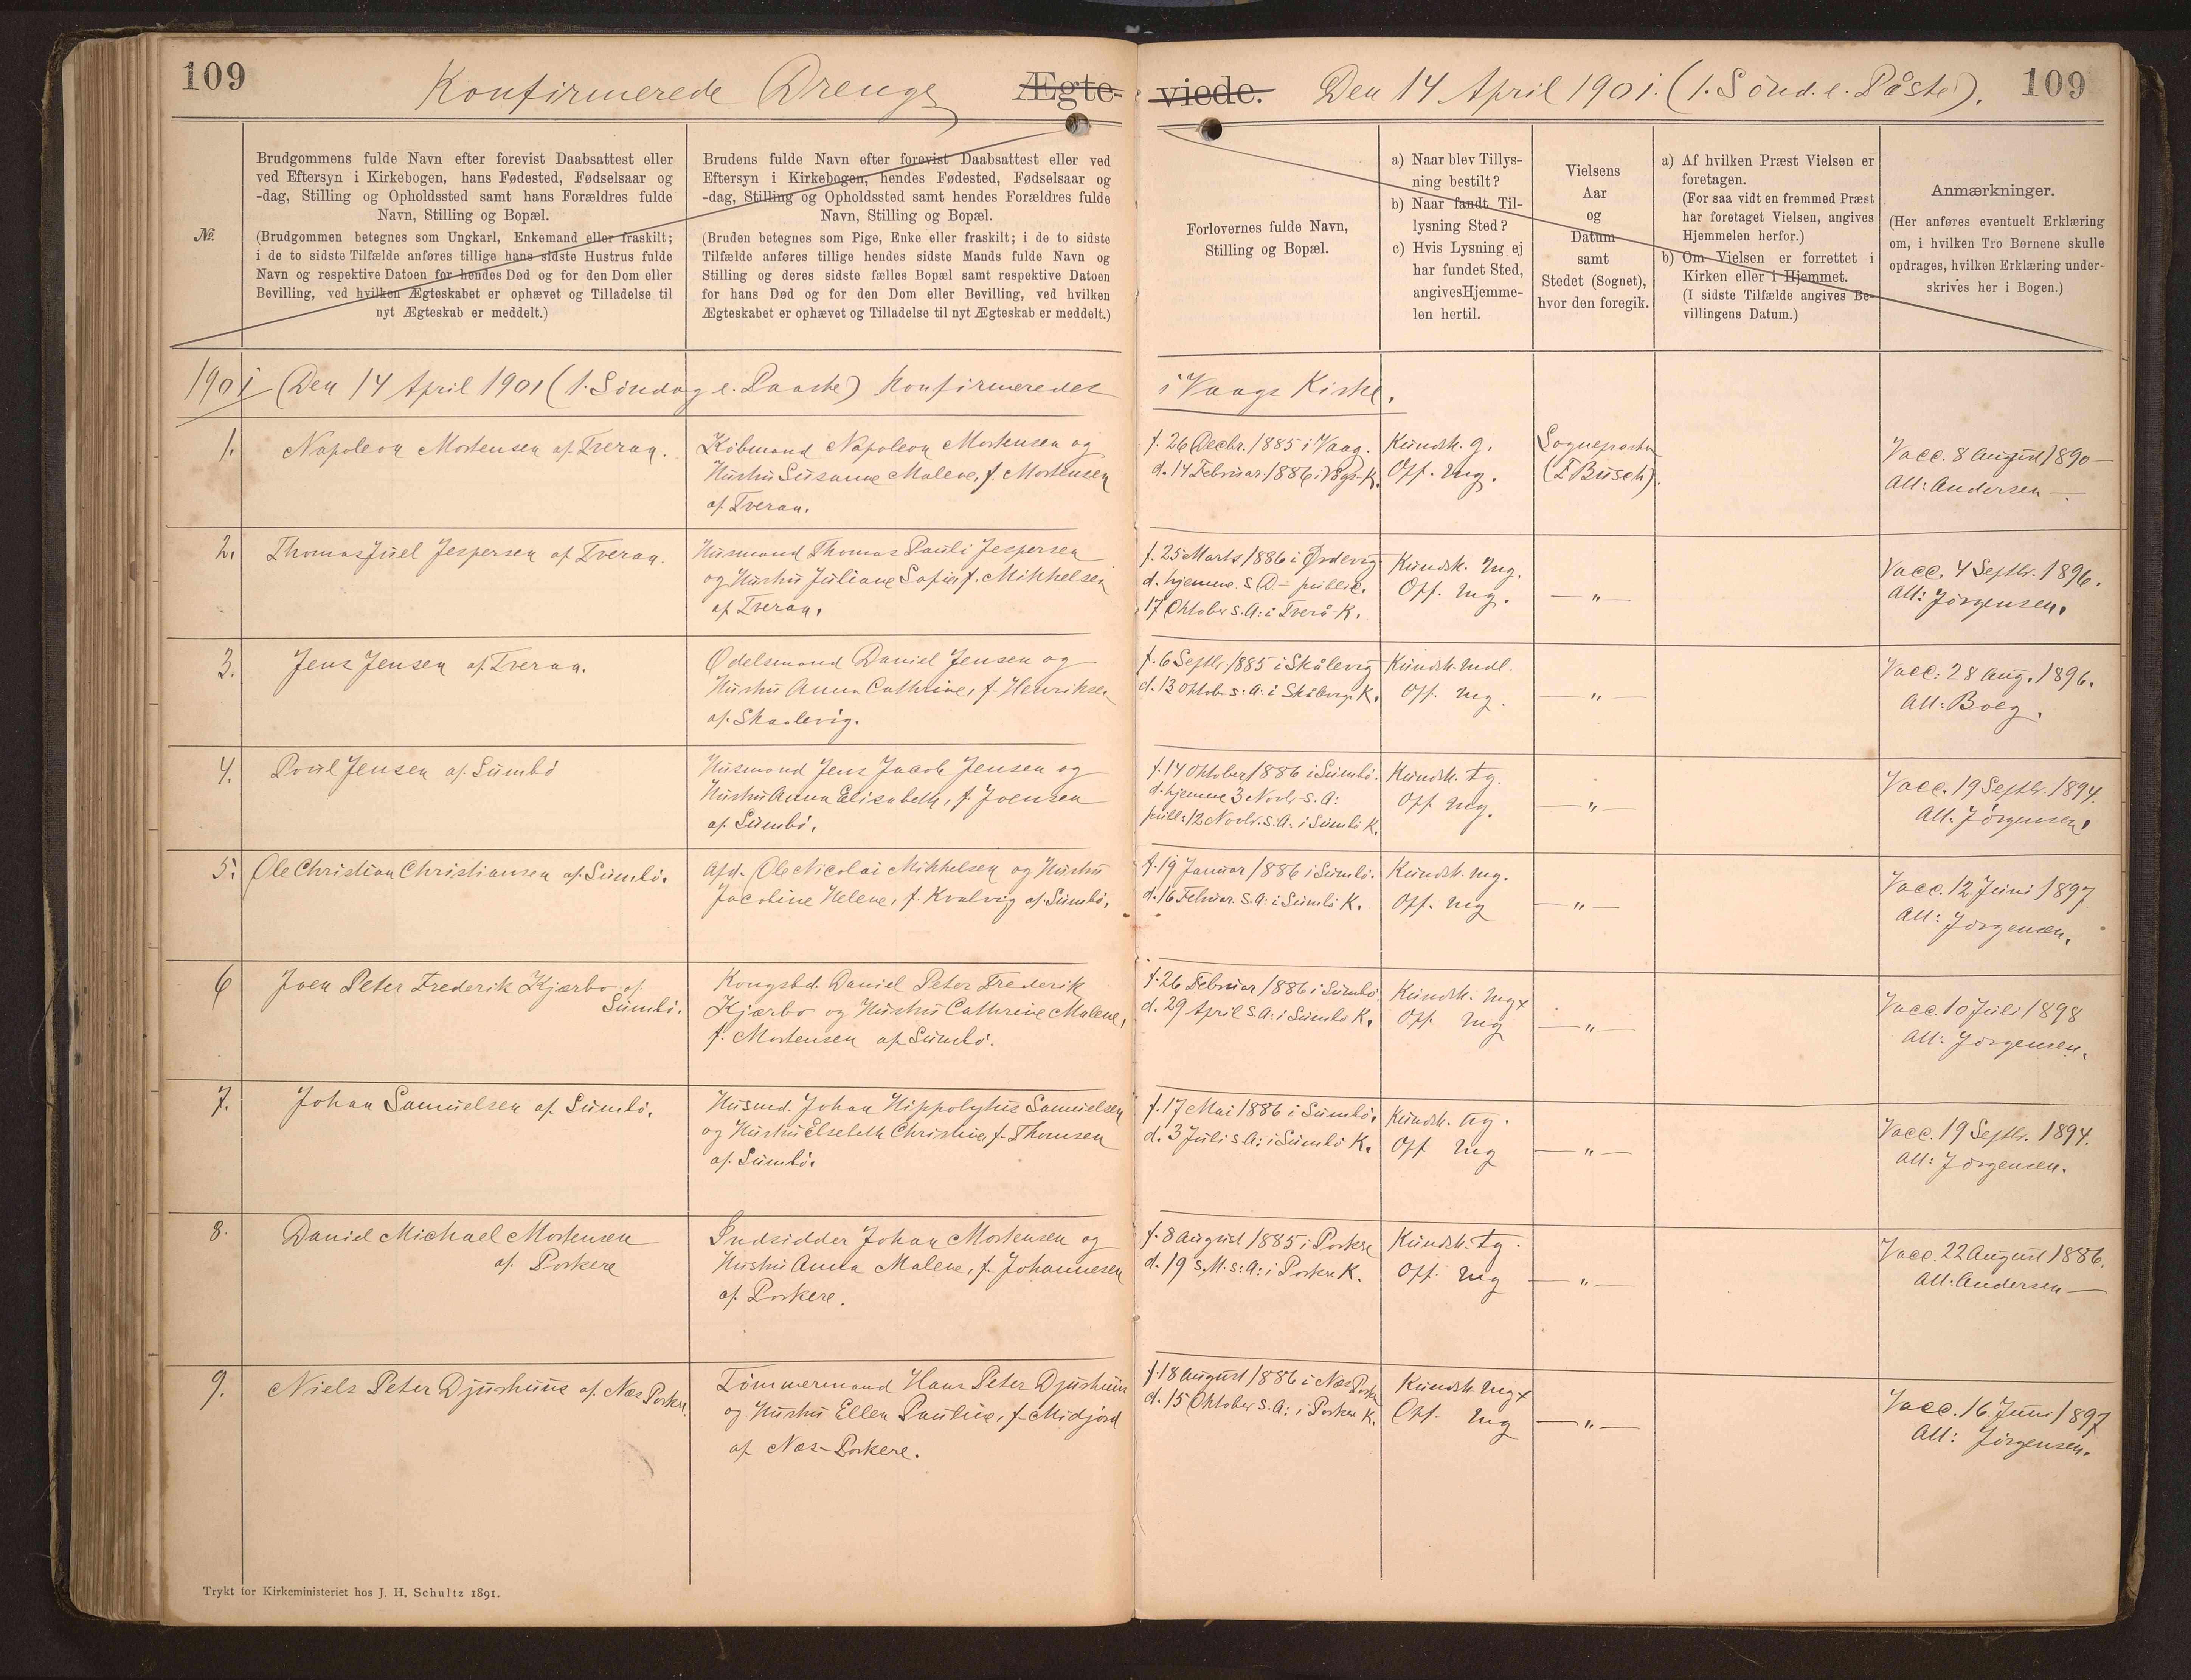 109
Konfirmerede Drenge
Ægte-
viede.
Den 14 April 1901. (1. Sönd. e. Påske).
109
№.
Brudgommens fulde Navn efter forevist Daabsattest eller
ved Eftersyn i Kirkebogen, hans Fødested, Fødselsaar og
-dag, Stilling og Opholdssted samt hans Forældres fulde
Navn, Stilling og Bopæl.
(Brudgommen betegnes som Ungkarl, Enkemand eller fraskilt;
i de to sidste Tilfælde anføres tillige hans sidste Hustrus fulde
Navn og respektive Datoen for hendes Død og for den Dom eller
Bevilling, ved hvilken Ægteskabet er ophævet og Tilladelse til
nyt Ægteskab er meddelt.)
Brudens fulde Navn efter forevist Daabsattest eller ved
Eftersyn i Kirkebogen, hendes Fødested, Fødselsaar og
-dag, Stilling og Opholdssted samt hendes Forældres fulde
Navn, Stilling og Bopæl.
(Bruden betegnes som Pige, Enke eller fraskilt; i de to sidste
Tilfælde anføres tillige hendes sidste Mands fulde Navn og
Stilling og deres sidste fælles Bopæl samt respektive Datoen
for hans Død og for den Dom eller Bevilling, ved hvilken
Ægteskabet er ophævet og Tilladelse til nyt Ægteskab er meddelt.)
Forlovernes fulde Navn,
Stilling og Bopæl.
a) Naar blev Tillys-
ning bestilt?
b) Naar fandt Til-
lysning Sted?
c) Hvis Lysning ej
har fundet Sted,
angives Hjemme-
len hertil.
Vielsens
Aar
og
Datum
samt
Stedet (Sognet),
hvor den foregik.
a) Af hvilken Præst Vielsen er
foretagen.
(For saa vidt en fremmed Præst
har foretaget Vielsen, angives
Hjemmelen herfor.)
b) Om Vielsen er forrettet i
Kirken eller i Hjemmet.
(I sidste Tilfælde angives Be-
villingens Datum.)
Anmærkninger.
(Her anføres eventuelt Erklæring
om, i hvilken Tro Børnene skulle
opdrages, hvilken Erklæring under-
skrives her i Bogen.)
1901 Den 14 April 1901 (1. Söndag e. Paaske) Konfirmeredes i Vaags Kirke.
1. Napoleon Mortensen af Tveraa.
Köbmand Napoleon Mortensen og
Hustru Susanne Malene, f. Mortensen
af Tveraa.
f. 26 Decbr. 1885 i Vaag.
d. 14 Februar 1886 i Vågs-K.
Kundsk. g.
Off. mg.
Sognepræsten
(F Busch).
Vacc. 8 August 1890 —
Att: Andersen —
2. Thomas Juel Jespersen af Tveraa.
Husmand Thomas Pauli Jespersen
og Hustru Juliane Sofie f. Mikkelsen
af Tveraa.
f. 25 Marts 1886 i Ørdevig
d. hjemme. s A. – public.
17 Oktober s. A: i Tverå-K.
Kundsk. mg.
Off. mg.
— " —
Vacc. 4 Septbr. 1896.
Att: Jörgensen.
3. Jens Jensen af Tveraa.
Odelsmand Daniel Jensen og
Hustru Anna Cathrine, f. Henriksen
af Skaalevig.
f. 6 Septbr. 1885 i Skålevig
d. 13 Oktob. s: A: i Skåbergs K.
Kundsk. mdl.
Off. mg.
— " —
Vacc: 28 Aug. 1896.
Att: Boeg.
4. Poul Jensen af Sumbö
Husmand Jens Jacob Jensen og
Hustru Anna Elisabeth, f. Joensen
af Sumbö.
f. 14 Oktober 1886 i Sumbö.
d. hjemme 3 Novbr. s. A:
publ: 12 Novbr. s. A: i Sumbö K.
Kundsk. tg.
Off mg.
— " —
Vacc. 19 Septbr. 1894.
Att: Jörgensen.
5. Ole Christian Christiansen af Sumbö.
Afd. Ole Nicolai Mikkelsen og Hustru
Jacobine Helene, f. Kvalvig af Sumbö.
f. 19 Januar 1886 i Sumbö.
d. 16 Februar. s. A: i Sumbö K.
Kundsk. mg.
Off. mg
— " —
Vacc. 12. Juni 1897
Att: Jörgensen.
6 Joen Peter Frederik Kjærbo af
Sumbö.
Kongsbd. Daniel Peter Frederik
Kjærbo og Hustru Cathrine Malene,
f. Mortensen af Sumbö.
f. 26 Februar 1886 i Sumbö
d. 29 April s. A: i Sumbö K.
Kundsk. mg x
Off. mg
— " —
Vacc. 10 Juli 1898
Att: Jörgensen.
7. Johan Samuelsen af Sumbö.
Husmd. Johan Hippolytus Samuelsen
og Hustru Elsebeth Christine, f. Thomsen
af Sumbö.
f. 17 Mai 1886 i Sumbö.
d. 3 Juli s. A: i Sumbö K.
Kundsk. tg.
Off mg
— " —
Vacc. 19 Septbr. 1894.
Att: Jörgensen.
8. Daniel Michael Mortensen
af Porkere
Indsidder Johan Mortensen og
Hustru Anna Malene, f. Johannesen
af Porkere.
f. 8 August 1885 i Porkere
d. 19 s. M. s: A: i Porkere K.
Kundsk. tg.
Off. mg
— " —
Vacc. 22 August 1886.
Att: Andersen —
9. Niels Peter Djurhuus af Næs Porkere.
Tömmermand Hans Peter Djurhuus
og Hustru Ellen Pauline, f. Midjord
af Næs-Porkere.
f. 18 August 1886 i Næs Porkere
d. 15 Oktober s. A: i Porkere K.
Kundsk. mg x
Off. mg
— " —
Vacc. 16 Juni 1897
Att: Jörgensen.
Trykt for Kirkeministeriet hos J. H. Schultz 1891.